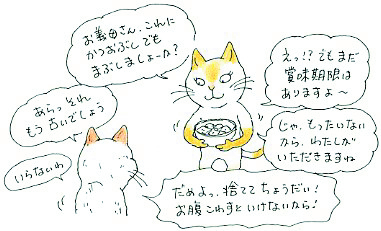 お義母さん、これに
かつおぶしでも
まぶしましょーか?
あらっそれ、
もう古いでしょう
えっ!?でもまだ
賞味期限は
ありますよ〜
いらないわ
じゃ、もったいない
から、わたしが
いただきますね
だめよっ、捨ててちょうだい!
お腹こわすといけないから!